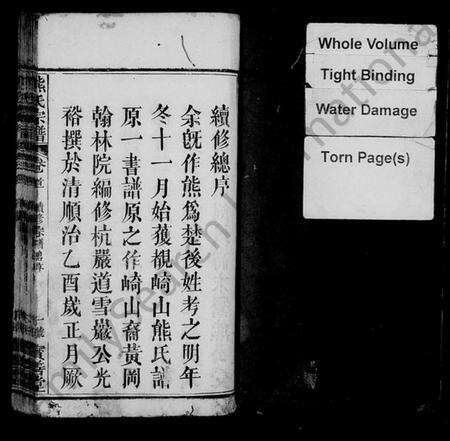 續修總序
余旣作熊爲楚後姓考之明年
冬十一月始獲覩崎山熊氏譜
原一書譜原之作崎山裔黃岡
翰林院編修杭嚴道雪巖公光
裕撰於清順治乙酉歲正月厥
熊氏宗譜
卷首
Whole Volume
Tight Binding
Water Damage
Torn Page(s)